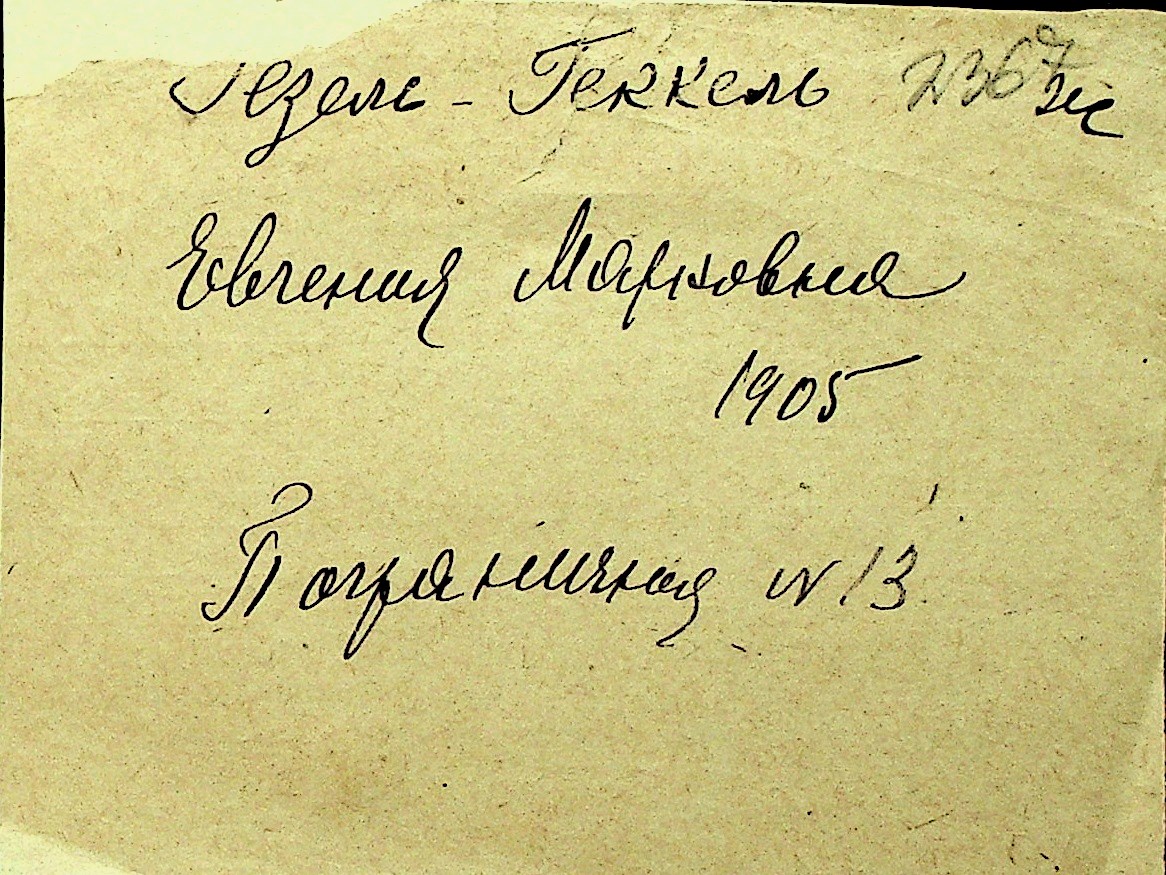 Гезель - Геккель 2367 ж
Евгения Марковна
1905
Пограничная N 13